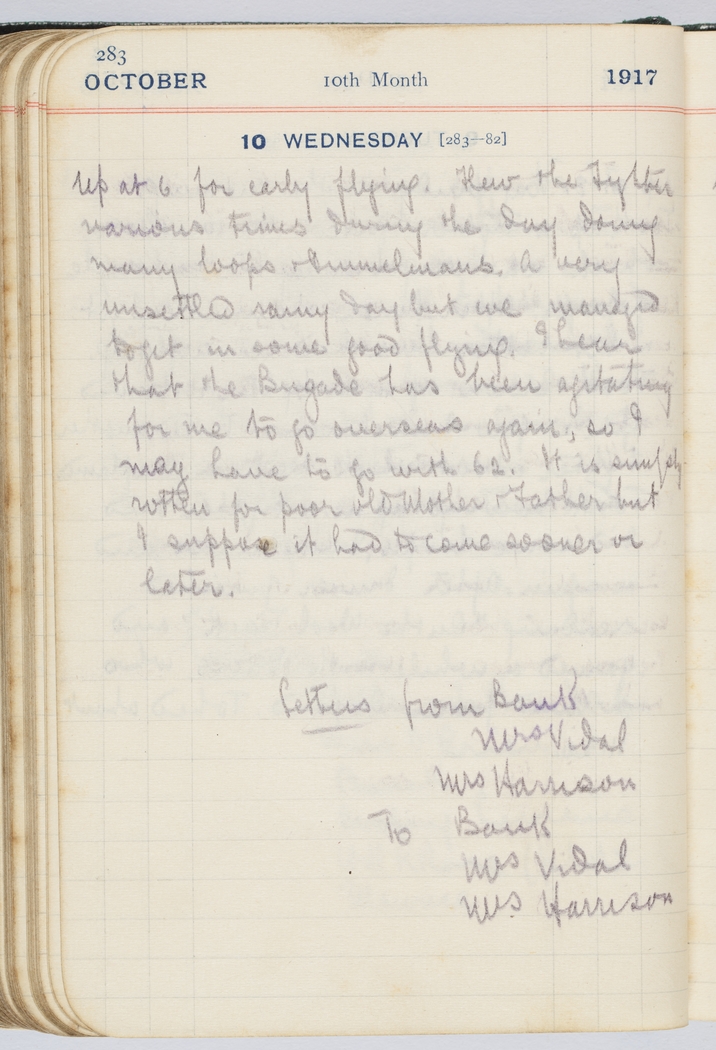 283
OCTOBER 10th Month 1917
10 WEDNESDAY [283—82]
Up at 6 for early flying. Flew the Fighter
various times during the day doing
many loops & Immelmans. A very
unsettled rainy day but we managed
to get in some good flying. I hear
that the Brigade has been agitating
for me to go overseas again, so I
may have to go with 62. It is simply
rotten for poor old Mother & Father but
I suppose it had to come sooner or
later.
Letters from Bank
Mrs Vidal
Mrs Harrison
To Bank
Mrs Vidal
Mrs Harrison